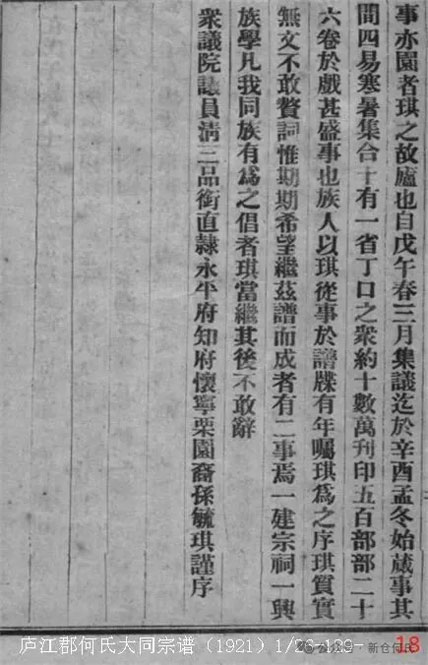 事亦園者琪之故廬也自戊午春三月集議迄於辛酉孟冬始蕆事其
間四易寒暑集合十有一省丁口之衆約十數萬刊印五百部部二十
六卷於戲甚盛事也族人以琪從事於譜牒有年囑琪爲之序琪質實
無文不敢贅詞惟期期希望繼茲譜而成者有二事焉一建宗祠一興
族學凡我同族有爲之倡者琪當繼其後不敢辭
衆議院議員清三品銜直隷永平府知府懷寧栗園裔孫毓琪謹序
庐江郡何氏大同宗谱（1921）1/26-139-
新仓何氏
18